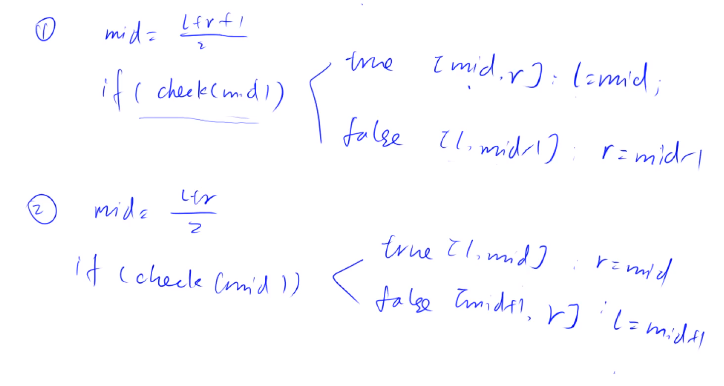 ① mid = l+r+1
2
if ( check(mid)) true [mid, r] : l=mid;
false [l, mid-1] : r=mid-1
② mid = l+r
2
if (check (mid)) true [l, mid] : r=mid
false [mid+1, r] : l=mid+1